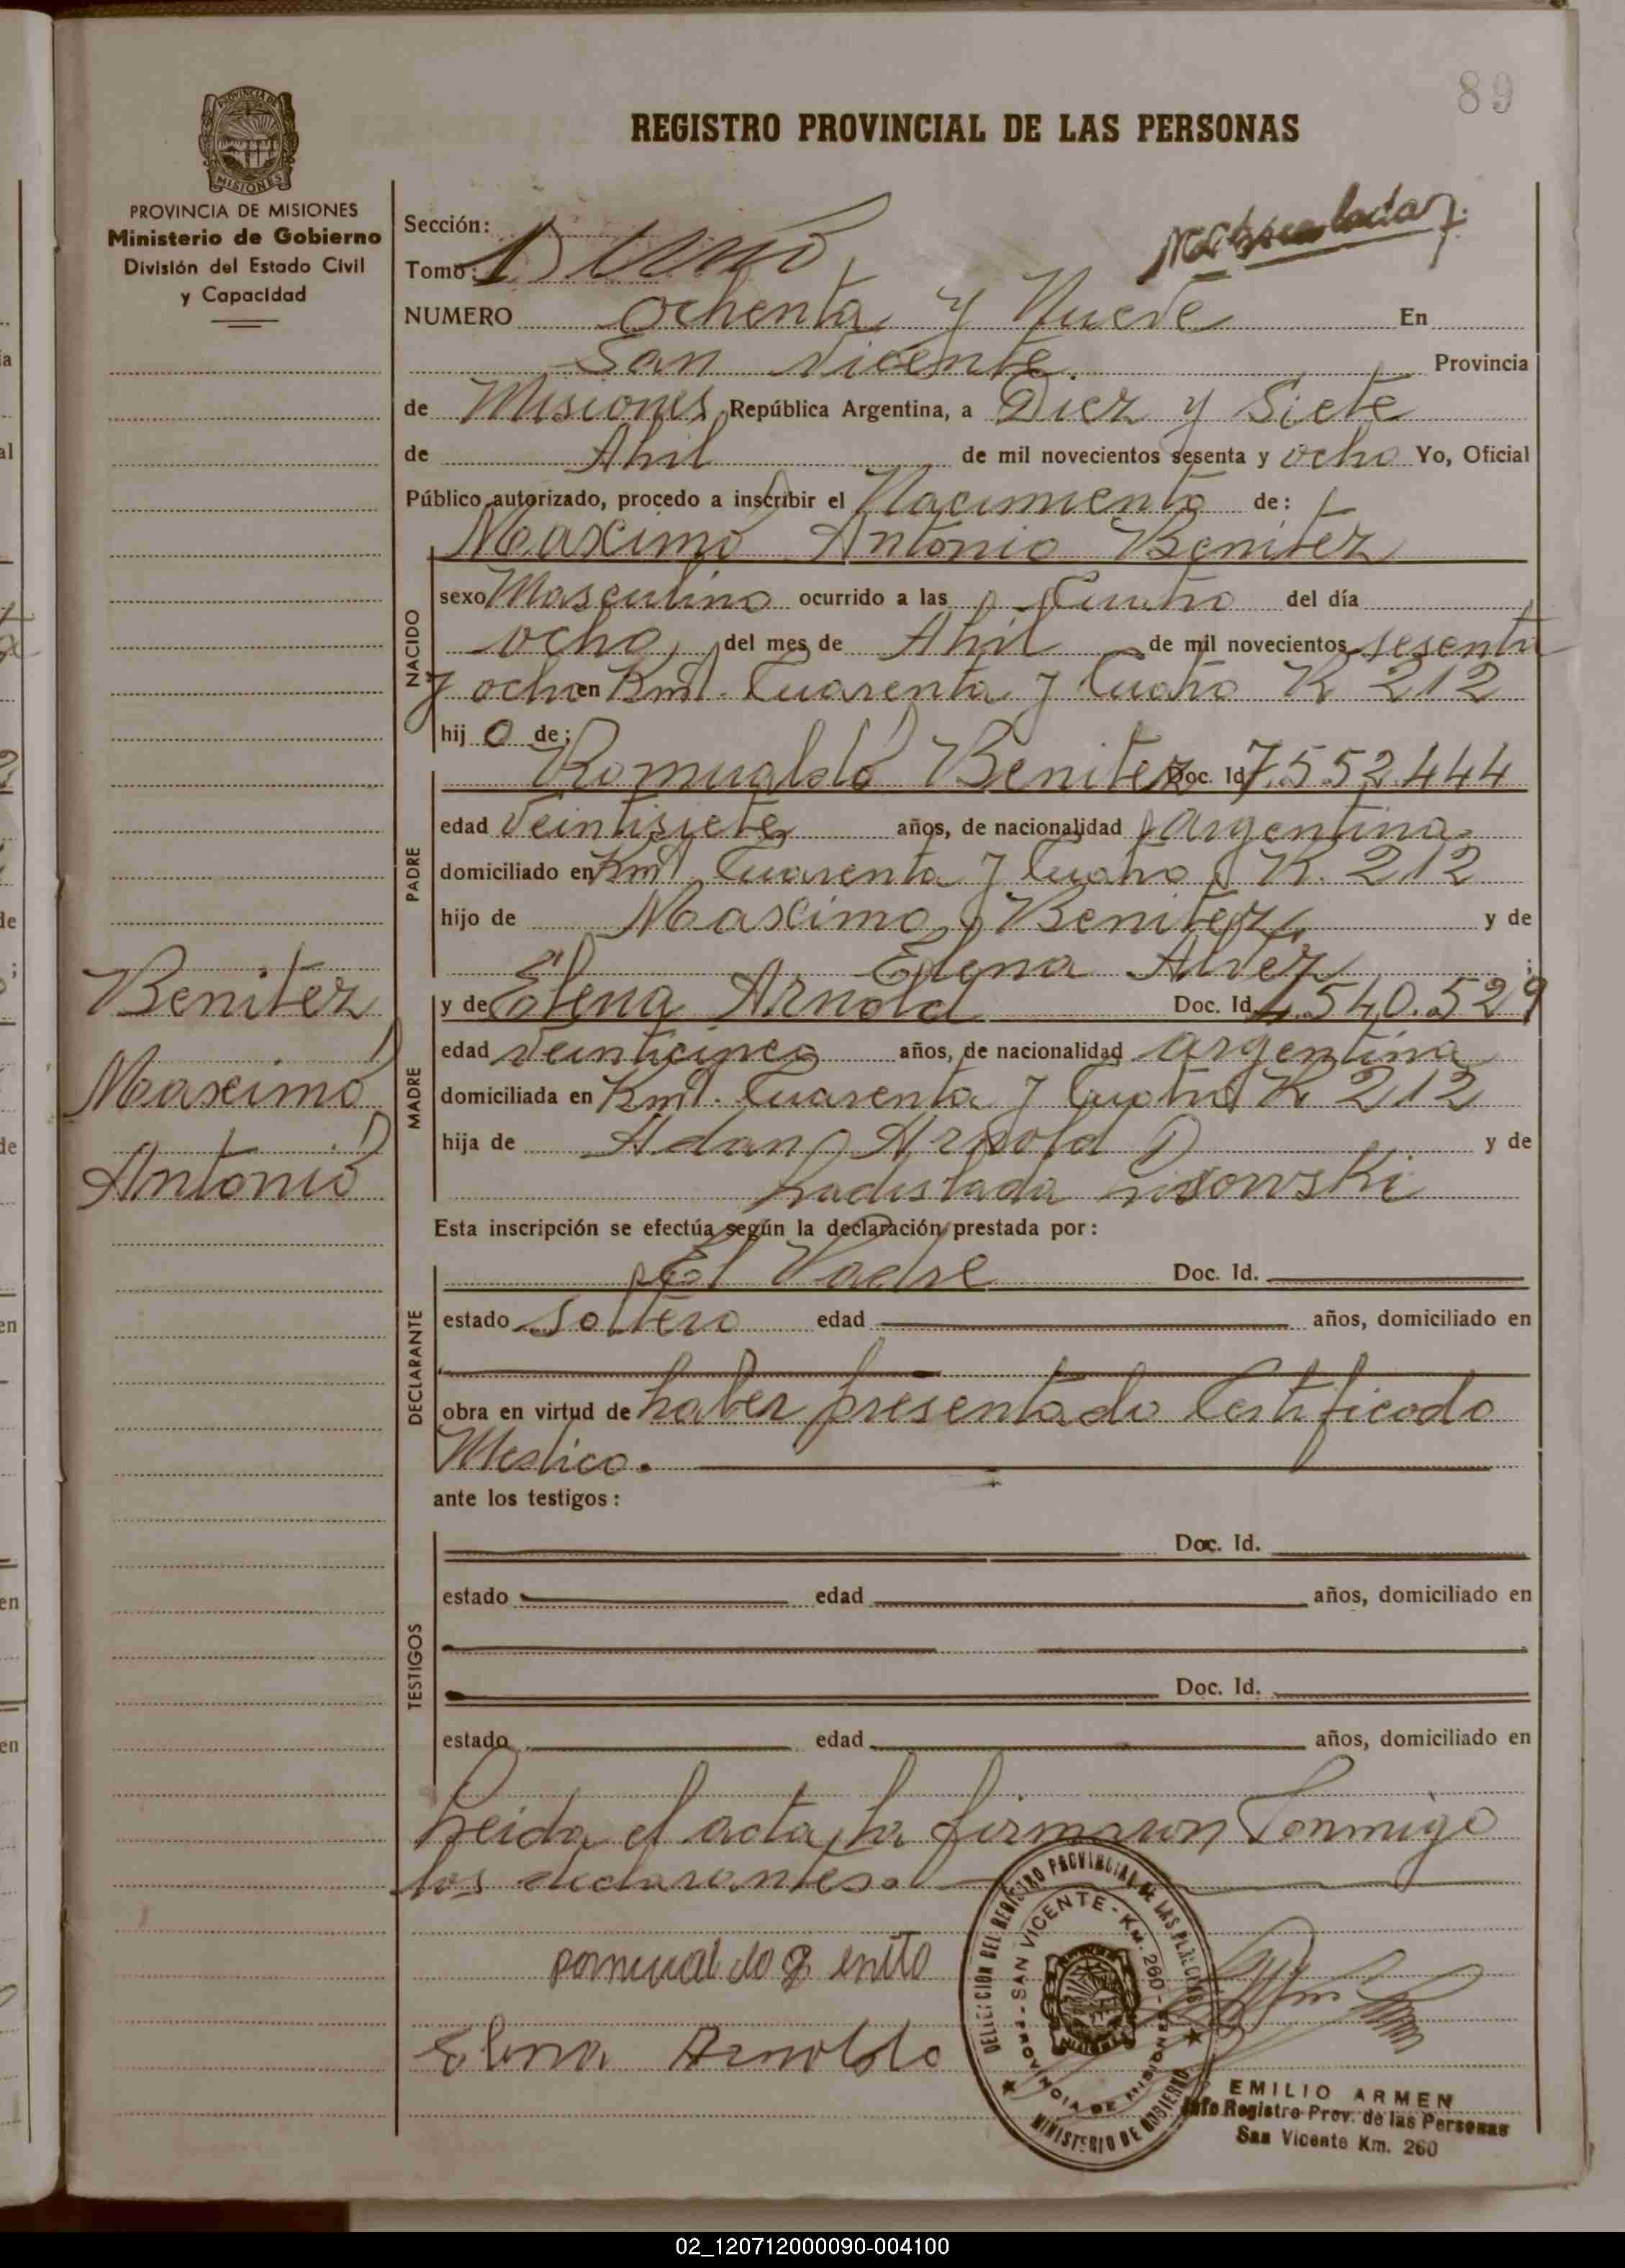 89
REGISTRO PROVINCIAL DE LAS PERSONAS
PROVINCIA DE MISIONES
Ministerio de Gobierno
División del Estado Civil
y Capacidad
Sección:
Tomo: Uno
NUMERO ochenta y Nueve En
San Vicente. Provincia
de Misiones República Argentina, a Diez y Siete
de Abril de mil novecientos sesenta y ocho Yo, Oficial
Público autorizado, procedo a inscribir el Nacimiento de:
Maximo Antonio Benitez
NACIDO
sexo Masculino ocurrido a las Cuatro del día
ocho del mes de Abril de mil novecientos sesenta
y ocho en Kmt. Cuarenta y Cuatro K 212
hij o de;
Romualdo Benitez Doc. Id 7.552.444
PADRE
edad Veintisiete años, de nacionalidad argentina
domiciliado en Kmt. Cuarenta y Cuatro K. 212
hijo de Maximo Benitez y de
Elena Alvez ;
MADRE
y de Elena Arnold Doc. Id. 4.540.529
edad Veinticinco años, de nacionalidad argentina
domiciliada en Kmt. Cuarenta y Cuatro K 212
hija de Adan Arnold y de
Ladislada Lisowski
Benitez
Maximo
Antonio
Esta inscripción se efectúa según la declaración prestada por:
DECLARANTE
El Padre Doc. Id.
estado Soltero edad años, domiciliado en
obra en virtud de haber presentado Certificado
Medico.
ante los testigos:
TESTIGOS
Doc. Id.
estado edad años, domiciliado en
Doc. Id.
estado edad años, domiciliado en
Leida el acta, la firmaron Conmigo
los declarantes.
Elena Arnoldo
DELEGACION DEL REGISTRO PROVINCIAL DE LAS PERSONAS
SAN VICENTE - KM. 260 - PROVINCIA DE MISIONES
MINISTERIO DE GOBIERNO
EMILIO ARMEN
Jefe Registro Prov. de las Personas
San Vicente Km. 260
02_120712000090-004100